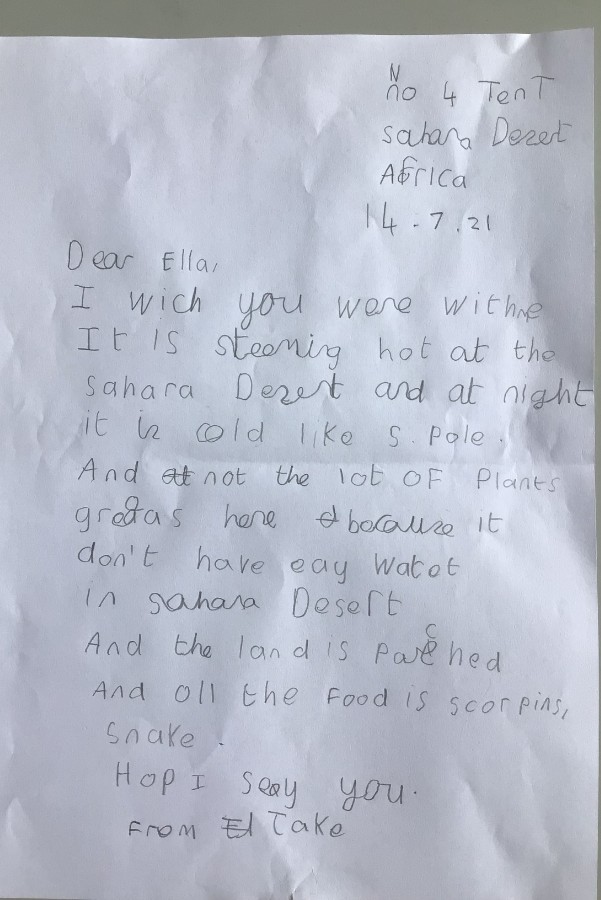 No 4 TenT
sahara Dezert
Africa
14.7.21
Dear Ella,
I wich you were withne
It is steeming hot at the
sahara Dezert and at night
it is cold like S. Pole.
And not the lot OF Plants
here because it
don't have eay Watot
in sahara Desert
And the land is parched
And oll the Food is scorpins,
Snake.
Hop I seay you.
From Take